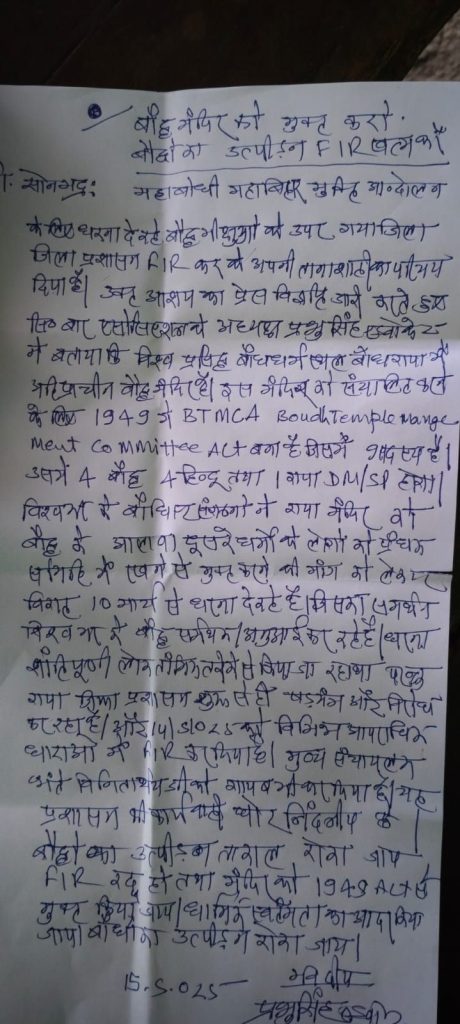 बौद्ध मंदिर को मुक्त करो.
बौद्धों का उत्पीड़न FIR खत्म करें
सोनभद्र: महाबोधी महाविहार मुक्ति आन्दोलन
के लिए धरना दे रहे बौद्ध भीक्षुओं के उपर गया जिला
जिला प्रशासन FIR कर के अपनी तानाशाही का परिचय
दिया है। उक्त आशय का प्रेस विज्ञप्ति जारी करते हुए
बार एसोसिएशन के अध्यक्ष प्रभु सिंह एडवोकेट
ने बताया कि विश्व प्रसिद्ध बौधधर्म स्थल बोध गया में
अतिप्राचीन बौद्ध मंदिर है। इस मंदिर को संचालित करने
के लिए 1949 में BTMCA Boudh Temple Mange
ment Committee ACT बना है जिसमें 9 सदस्य है।
उसमें 4 बौद्ध 4 हिन्दू तथा 1 गया DM/SP होगा।
विश्वभर के बौधिष्ट संगठनों ने गया मंदिर को
बौद्ध के अलावा दूसरे धर्मों के लोगों को प्रबंधन
समिति में रखने से मुक्त करने की मांग को लेकर
विगत 10 मार्च से धरना दे रहे है। जिसका समर्थन
विश्व भर के बौद्ध समर्थक/अनुआई कर रहे है। धरना
शांतिपूर्ण लोकतांत्रिक तरीके से किया जा रहा था परन्तु
गया जिला प्रशासन शुरू से ही षडयंत्र और विरोध
कर रहा है। और 14/5/025 को विभिन्न आपराधिक
धाराओं में FIR कर दिया है। मुख्य संचालक
भंते को गायब भी कर दिया है। यह
प्रशासन की कार्यवाही घोर निंदनीय है।
बौद्धों का उत्पीड़न तत्काल रोका जाय
FIR रद्द हो तथा मंदिर को 1949 ACT से
मुक्त किया जाय। धार्मिक स्वतंत्रता का आदर किया
जाय। बौधों का उत्पीड़न रोका जाय।
15.5.025 भवदीय
प्रभु सिंह एडवोकेट